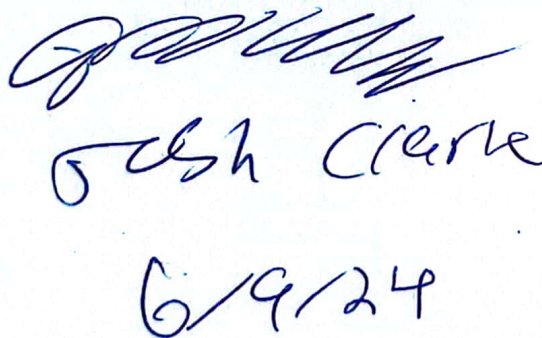 Josh Clarke
6/9/24